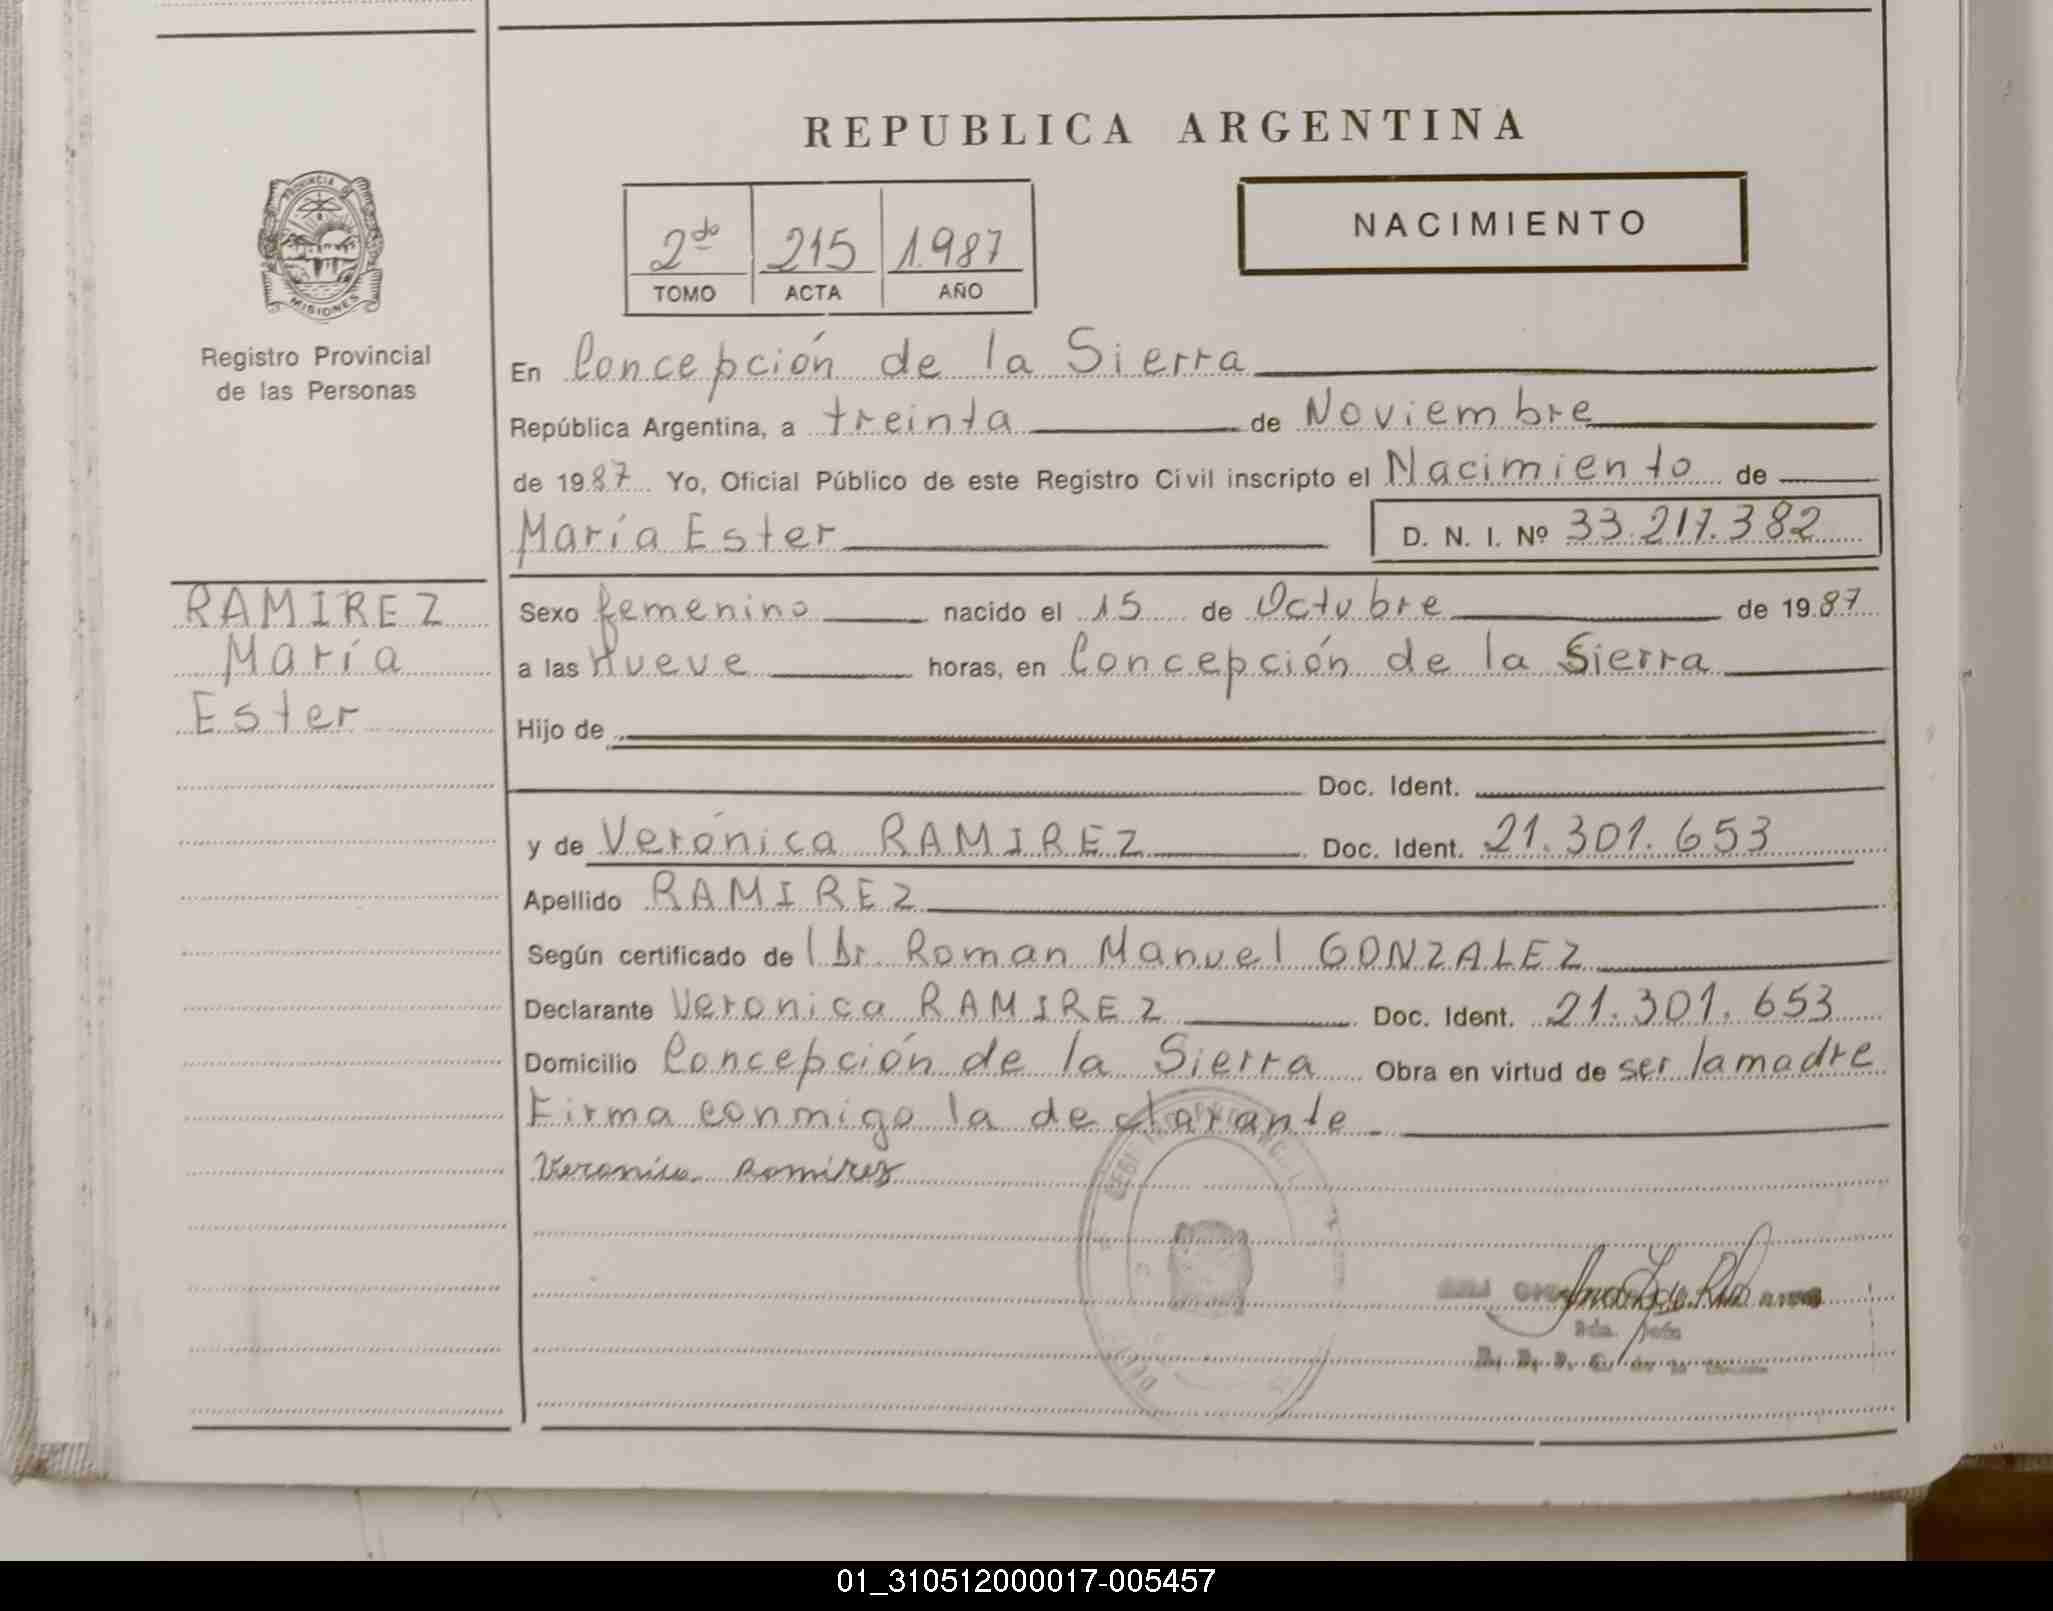 REPUBLICA ARGENTINA
PROVINCIA DE
MISIONES
Registro Provincial
de las Personas
2do 215 1987
TOMO ACTA AÑO
NACIMIENTO
En Concepción de la Sierra
República Argentina, a treinta de Noviembre
de 1987 Yo, Oficial Público de este Registro Civil inscripto el Nacimiento de
María Ester D. N. I. Nº 33.217.382
RAMIREZ
María
Ester
Sexo femenino nacido el 15 de Octubre de 1987
a las nueve horas, en Concepción de la Sierra
Hijo de
Doc. Ident.
y de Verónica RAMIREZ Doc. Ident. 21.301.653
Apellido RAMIREZ
Según certificado de l Dr. Roman Manuel GONZALEZ
Declarante Veronica RAMIREZ Doc. Ident. 21.301.653
Domicilio Concepción de la Sierra Obra en virtud de ser la madre
Firma conmigo la declarante
Veronica Ramirez
01_310512000017-005457